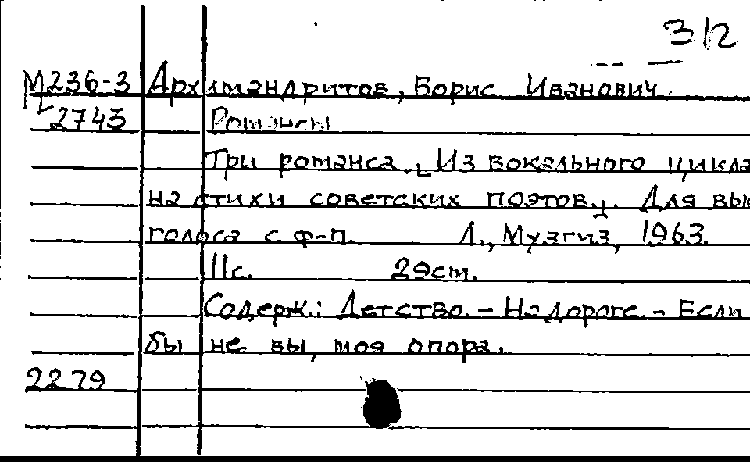 3/2
М236-3 Архимандритов, Борис Иванович.
2743 Романсы
Три романса. [Из вокального цикла
на стихи советских поэтов.]. Для выс
голоса с ф-п. Л., Музгиз, 1963.
11с. 29см.
Содерж.: Детство. - На дороге. - Если
бы не вы, моя опора.
2279